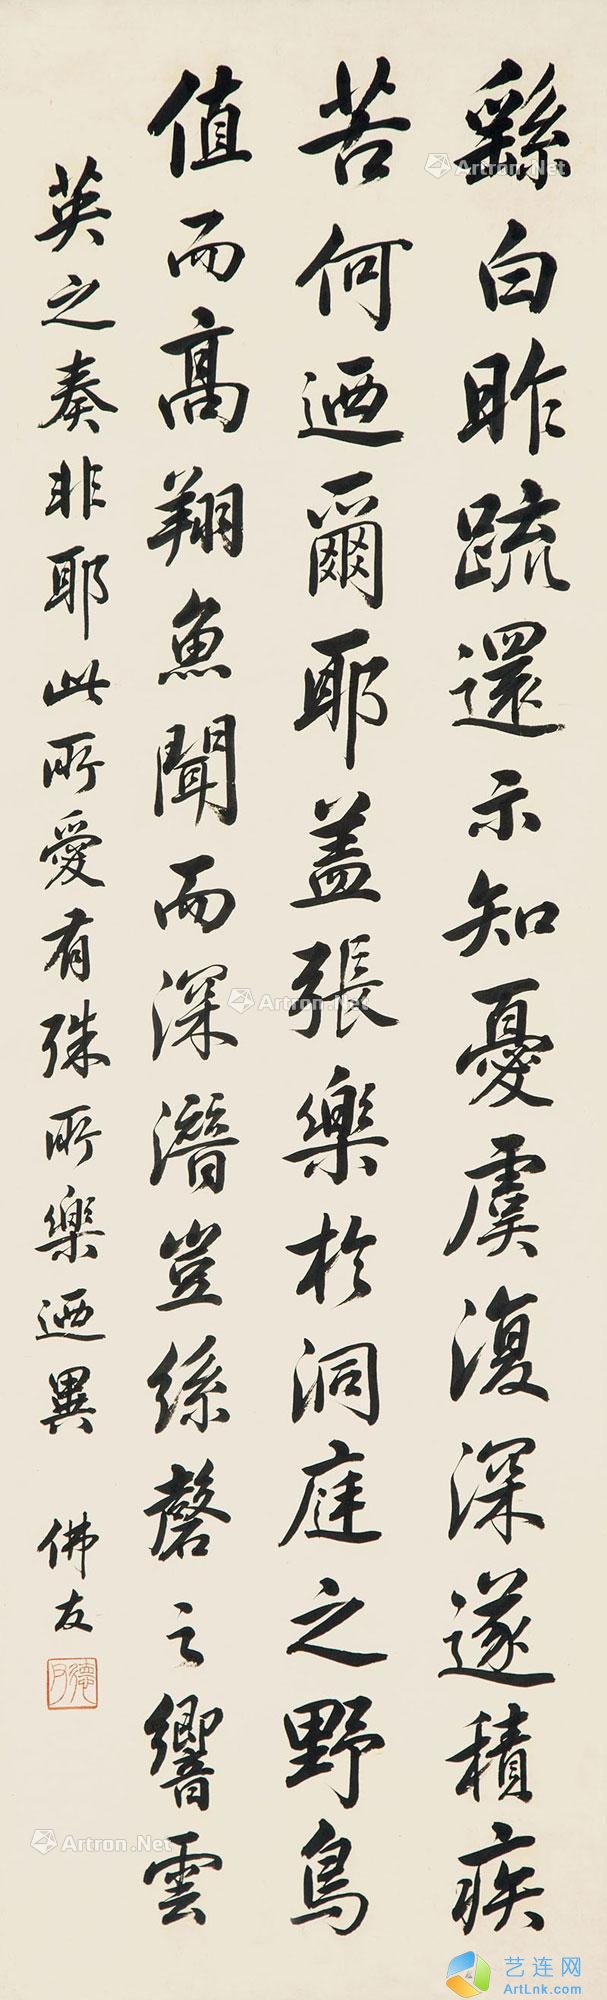 繇白昨疏還示知憂虞復深遂積疾
苦何迺爾耶蓋張樂於洞庭之野鳥
值而高翔魚聞而深潛豈絲磬之響雲
英之奏非耶此所愛有殊所樂迺異
佛友
Artron.Net
Artron.Net
Artron.Net
Artron.Net
艺连网
ArtLnk.com